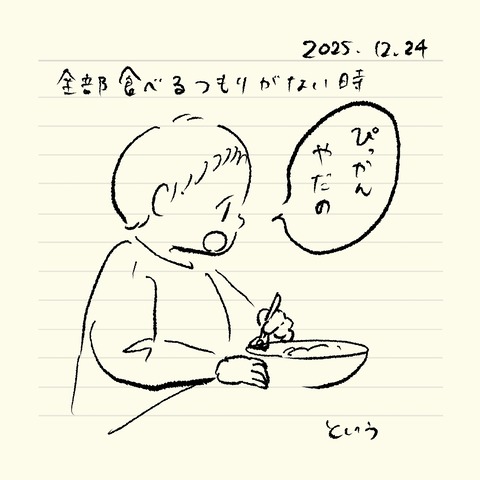 2025. 12. 24
全部食べるつもりがない時
ぴっかん
やだの
という